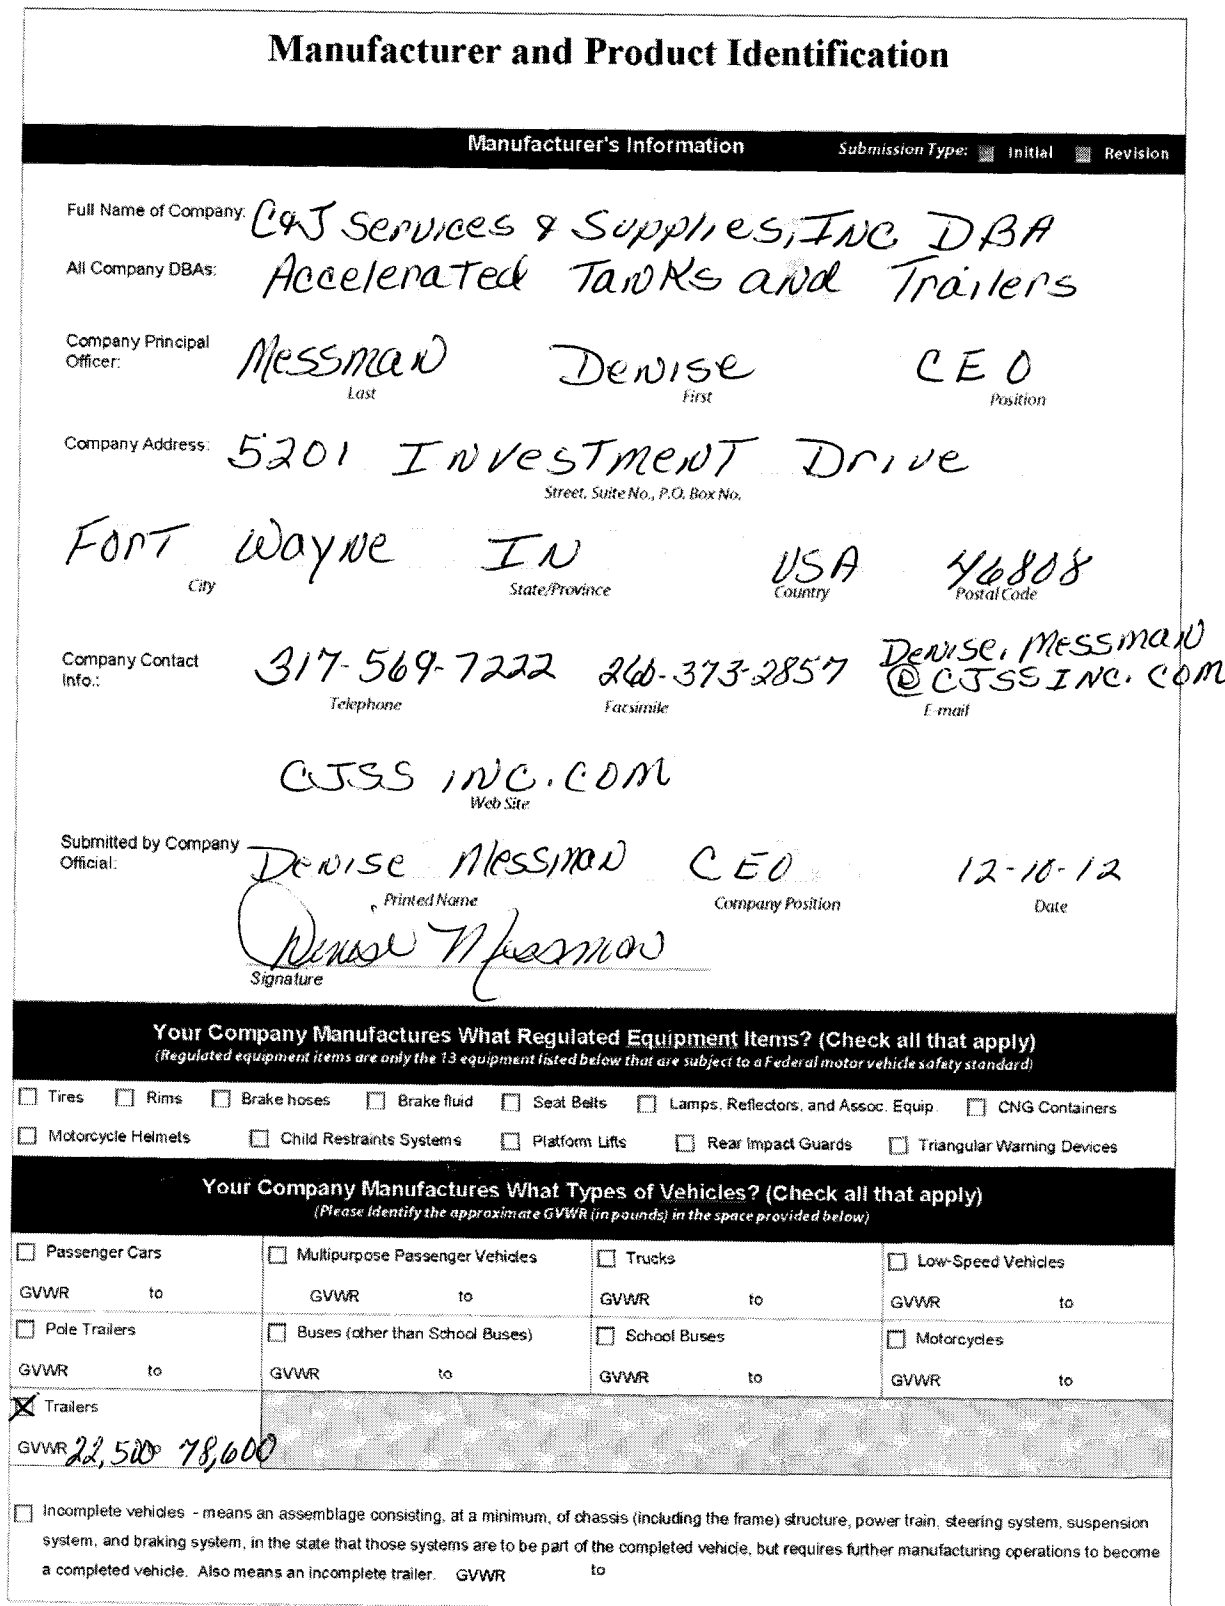 Manufacturer and Product Identification
Manufacturer's Information Submission Type: Initial Revision
Full Name of Company: C&J Services & Supplies, INC DBA
All Company DBAs: Accelerated Tanks and Trailers
Company Principal Officer: Messman Denise CEO
Last First Position
Company Address: 5201 Investment Drive
Street, Suite No., P.O. Box No.
Fort Wayne IN USA 46808
City State/Province Country Postal Code
Company Contact Info.: 317-569-7222 260-373-2857 Denise.Messman
@CJSSINC.COM
Telephone Facsimile E-mail
CJSSINC.COM
Web Site
Submitted by Company Official: Denise Messman CEO 12-10-12
Printed Name Company Position Date
Denise Messman
Signature
Your Company Manufactures What Regulated Equipment Items? (Check all that apply)
(Regulated equipment items are only the 13 equipment listed below that are subject to a Federal motor vehicle safety standard)
Tires Rims Brake hoses Brake fluid Seat Belts Lamps, Reflectors, and Assoc. Equip. CNG Containers
Motorcycle Helmets Child Restraints Systems Platform Lifts Rear Impact Guards Triangular Warning Devices
Your Company Manufactures What Types of Vehicles? (Check all that apply)
(Please Identify the approximate GVWR (in pounds) in the space provided below)
Passenger Cars Multipurpose Passenger Vehicles Trucks Low-Speed Vehicles
GVWR to GVWR to GVWR to GVWR to
Pole Trailers Buses (other than School Buses) School Buses Motorcycles
GVWR to GVWR to GVWR to GVWR to
X Trailers
GVWR 22,500 to 78,600
Incomplete vehicles - means an assemblage consisting, at a minimum, of chassis (including the frame) structure, power train, steering system, suspension
system, and braking system, in the state that those systems are to be part of the completed vehicle, but requires further manufacturing operations to become
a completed vehicle. Also means an incomplete trailer. GVWR to